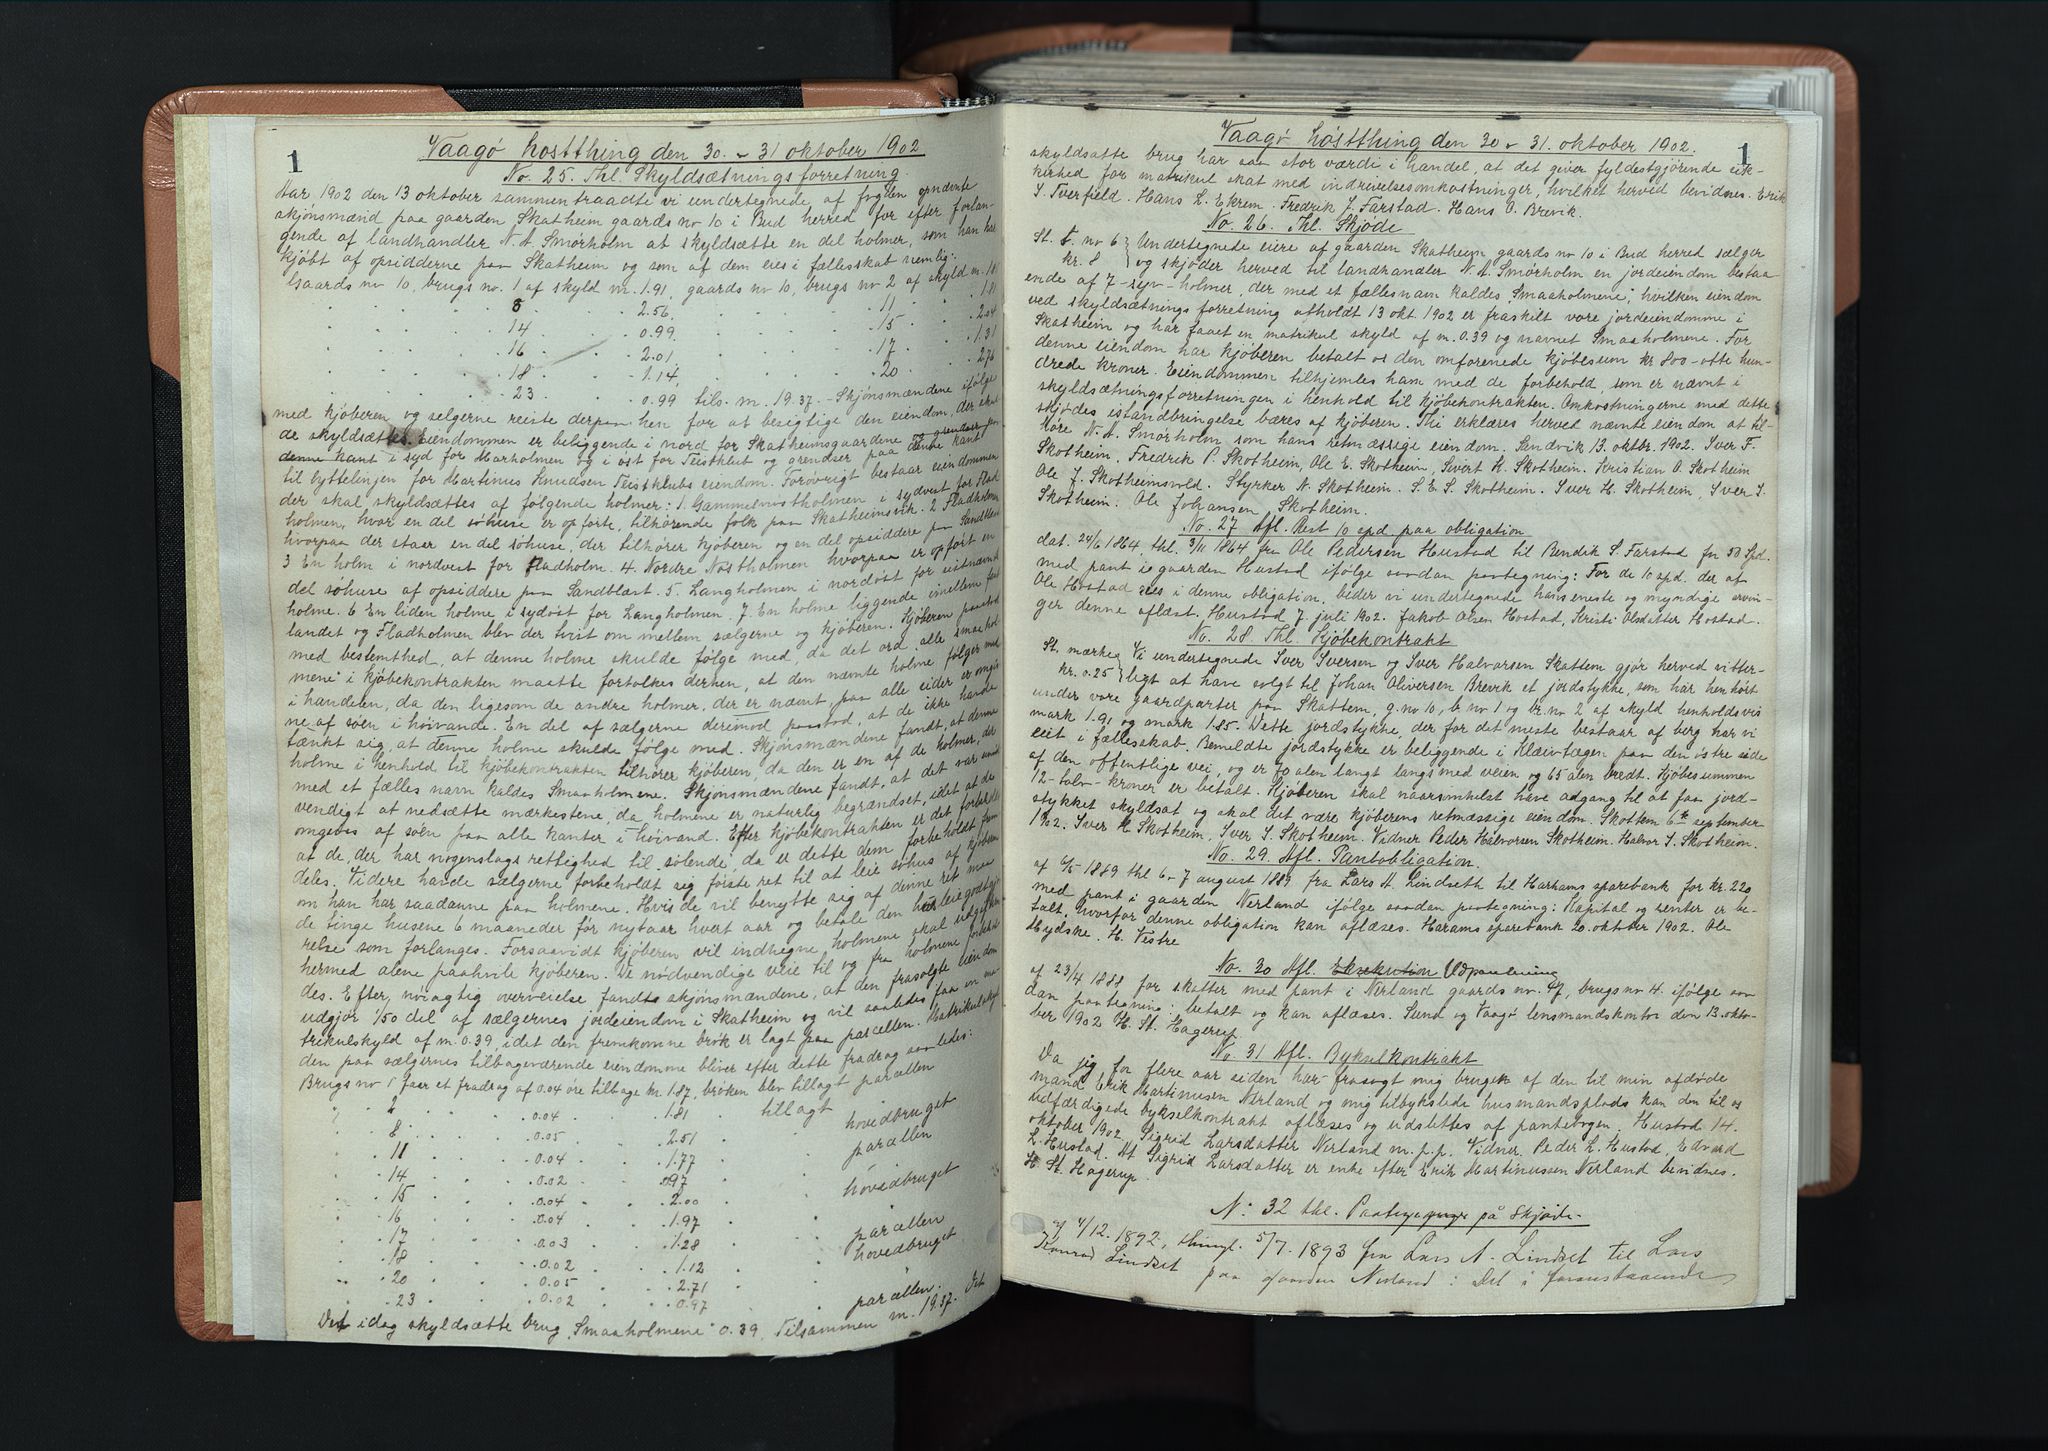 1
Vaagø høstthing den 30. - 31 oktober 1902
No. 25. Thl. Skyldsætningsforretning.
Aar 1902 den 13 oktober sammentraadte vi undertegnede af fogden opnævnte
skjønsmænd paa gaarden Skatheim gaards no 10 i Bud herred for efter forlan-
gende af landhandler N. A. Smørholm at skyldsætte en del holmer, som han har
kjøbt af opsidderne paa Skatheim og som af dem eies i fællesskab nemlig:
Gaards no 10, brugs no. 1 af skyld m. 1.91, gaards no 10, brugs no 2 af skyld m.
8 2.56. 11 1.81
14 0.99. 15 2.04
16 2.01. 17 1.31
18 1.14. 20 2.76
23 0.99 tils. m. 19.37. - Skjønsmændene ifølge
med kjøberen og selgerne reiste derpaa hen for at besigtige den eiendom, der skal
de skyldsættes. Eiendommen er beliggende i nord for Skatheimsgaardene og grendser paa
denne kant i syd for Marholmen og i øst for Teistklut og grendser paa denne kant
til byttelinjen for Martinus Knudsen Teistklubs eiendom. Forøvrigt bestaar eiendommen
der skal skyldsættes af følgende holmer: 1. Gammelnostholmen i sydvest for Flad
holmen, hvor en del søhuse er opførte, tilhørende folk paa Skatheimsvik. 2 Fladholmen
hvorpaa der staar en del søhuse, der tilhører kjøberen og en del opsiddere paa Sandblast
3 En holm i nordvest for Fladholm. 4. Nordre Nostholmen hvorpaa er opført en
del søhuse af opsiddere paa Sandblast. 5. Langholmen i nordøst for sidstnævnte
holme. 6 En liden holme i sydøst for Langholmen. 7. En holme liggende imellem fast
landet og Fladholmen blev der tvist om mellem sælgerne og kjøberen. Kjøberen paastod
med bestemthed, at denne holme skulde følge med, da det ord „alle smaahol
mene" i kjøbekontrakten maatte fortolkes derhen, at den nævnte holme følger med
i handelen, da den ligesom de andre holmer, der er nævnt paa alle sider er omgit
ne af søen i høivande. En del af sælgerne derimod paastod, at de ikke havde
tænkt sig, at denne holme skulde følge med. Skjønsmændene fandt, at denne
holme i henhold til kjøbekontrakten tilhører kjøberen, da den er en af de holmer, der
med et fælles navn kaldes Smaaholmene. Skjønsmændene fandt, at det var unød
vendigt at nedsætte mærkestene, da holmene er naturlig begrændset, idet at de
omgives af søen paa alle kanter i høivand. Efter kjøbekontrakten er det forbeholdt
at de, der har nogenslags rettighed til sølende, da er dette dem forbeholdt frem
deles. Videre havde sælgerne forbeholdt sig første ret til at leie søhus af kjøberen
om han har saadanne paa holmene. Hvis de vil benytte sig af denne ret maa
de tinge husene 6 maaneder før nytaar hvert aar og betale den husleie godtgjø
relse som forlanges. Forsaavidt kjøberen vil indhegne holmene skal udgifterne
hermed alene paahvile kjøberen. De nødvendige veie til og fra holmene forbehold
des. Efter nøiagtig overveielse fandt skjønsmændene, at den frasolgte eiendom
udgjør 1/50 del af sælgernes jordeiendom i Skatheim og vil saaledes faa en ma-
trikulskyld af m. 0.39, idet den fremkomne brøk er lagt paa parcellen. Matrikulskyl
den paa sælgernes tilbageværende eiendomme bliver efter dette fradrag saaledes:
Brugs no 1 faar et fradrag af 0.04 øre tilbage kr. 1.87, brøken blev tillagt parcellen
2 0.04 1.81 tillagt hovedbruget
8 0.05 2.51 parcellen
11 0.04 1.77
14 0.02 0.97 hovedbruget
15 0.04 2.00
16 0.04 1.97
17 0.03 1.28 parcellen
18 0.02 1.12 hovedbruget
20 0.05 2.71
23 0.02 0.97 parcellen.
Det idag skyldsætte brug „Smaaholmene" 0.39. Tilsammen m. 19.37. Det
Vaagø høstthing den 30 - 31. oktober 1902. 1
skyldsatte brug har saa stor værdi i handel, at det giver fyldestgjørende sik-
kerhed for matrikul skat med indrivelsesomkostninger, hvilket herved bevidnes. Erik
I. Tverfjeld. Hans L. Ekrem. Fredrik J. Farstad. Hans O. Brevik.
No. 26. Thl. Skjøde
St. t. no 6 } Undertegnede eiere af gaarden Skatheim gaards no 10 i Bud herred sælger
kr. 8 } og skjøder herved til landhandler N. A. Smørholm en jordeiendom bestaa-
ende af 7 - syv - holmer, der med et fællesnavn kaldes „Smaaholmene", hvilken eiendom
ved skyldsætningsforretning afholdt 13 okt 1902 er fraskilt vore jordeiendomme i
Skatheim og har faaet en matrikul skyld af m. 0.39 og navnet Smaaholmene. For
denne eiendom har kjøberen betalt os den omforenede kjøbesum kr 800 - otte hun-
drede kroner. Eiendommen tilhjemles ham med de forbehold, som er nævnt i
skyldsætningsforretningen i henhold til kjøbekontrakten. Omkostningerne med dette
skjødes istandbringelse bæres af kjøberen. Thi erklæres herved nævnte eiendom at til-
høre N. A. Smørholm som hans retmæssige eiendom. Sandvik 13. oktbr. 1902. Iver F.
Skotheim, Fredrik P. Skotheim, Ole E. Skotheim, Sivert K. Skotheim. Kristian O. Skotheim
Ole J. Skotheimsvold. Styrker N. Skotheim. S. E. S. Skotheim. Iver H. Skotheim, Iver I.
Skotheim. Ole Johansen Skotheim.
No. 27 Afl. Rest 10 spd. paa obligation
dat. 24/6 1864, thl. 3/11 1864 fra Ole Pedersen Hustad til Bendik S. Farstad for 50 Spd.
med pant i gaarden Hustad ifølge saadan paategning: For de 10 spd. der af
Ole Hostad eies i denne obligation, beder vi undertegnede hans eneste og myndige arvin-
ger denne aflæst. Hustad 7. juli 1902. Jakob Olsen Hostad, Kristi Olsdatter Hostad.
No. 28 Thl. Kjøbekontrakt
St. mærke } Vi undertegnede Iver Iversen og Iver Halvorsen Skattem gjør herved vitter-
kr. 0.25 } ligt at have solgt til Johan Oliversen Brevik et jordstykke, som har henhørt
under vore gaardparter paa Skattem, g. no 10, b. no 1 og br. no 2 af skyld henholdsvis
mark 1.91 og mark 1.85. Dette jordstykke, der for det meste bestaar af berg har vi
eiet i fællesskab. Bemeldte jordstykke er beliggende i Kleivtægen paa den østre side
af den offentlige vei, og er 70 alen langt langs med veien og 65 alen bredt. Kjøbesummen
12 - tolv - kroner er betalt. Kjøberen skal naarsomhelst have adgang til at faa jord-
stykket skyldsat og skal det være kjøberens retmæssige eiendom. Skottem 6te september
1902. Iver H Skotheim, Iver I. Skotheim. Vidner Peder Halvorsen Skotheim. Halvor I. Skotheim.
No. 29. Afl. Pantobligation.
af 6/5 1889 thl 6 - 7 august 1889 fra Lars A. Lindseth til Harhams sparebank for kr. 220
med pant i gaarden Nerland ifølge saadan paategning: Kapital og renter er be-
talt, hvorfor denne obligation kan aflæses. Harams sparebank 20. oktober 1902. Ole
Mydske. H. Vestre
No. 30 Afl. Eksekution Udpantning
af 23/4 1888 for skatter med pant i Nerland gaards no. 97, brugs no 4. ifølge saa
dan paategning: betalt og kan aflæses. Sund og Vaagø lensmandskontor den 13. okto-
ber 1902 H. St. Hagerup.
No. 31 Afl. Bykselkontrakt
Da jeg for flere aar siden har frasagt mig brugen af den til min afdøde
mand Erik Martinusen Nerland og mig tilbykslede husmandsplads kan den til os
udfærdigede bykselkontrakt aflæses og udslettes af pantebogen. Hustad 14.
oktober 1902. Sigrid Larsdatter Nerland m. p. p. Vidner. Peder L. Hustad, Edvard
L. Hustad. At Sigrid Larsdatter er enke efter Erik Martinusen Nerland bevidnes.
H. St. Hagerup.
N: 32 thl. på skjøde.
af 7/12. 1892, thingl. 5/7. 1893 fra Lars A. Lindset til Lars
Konrad Lindset paa gaarden Nerland: Det i foranstaaende